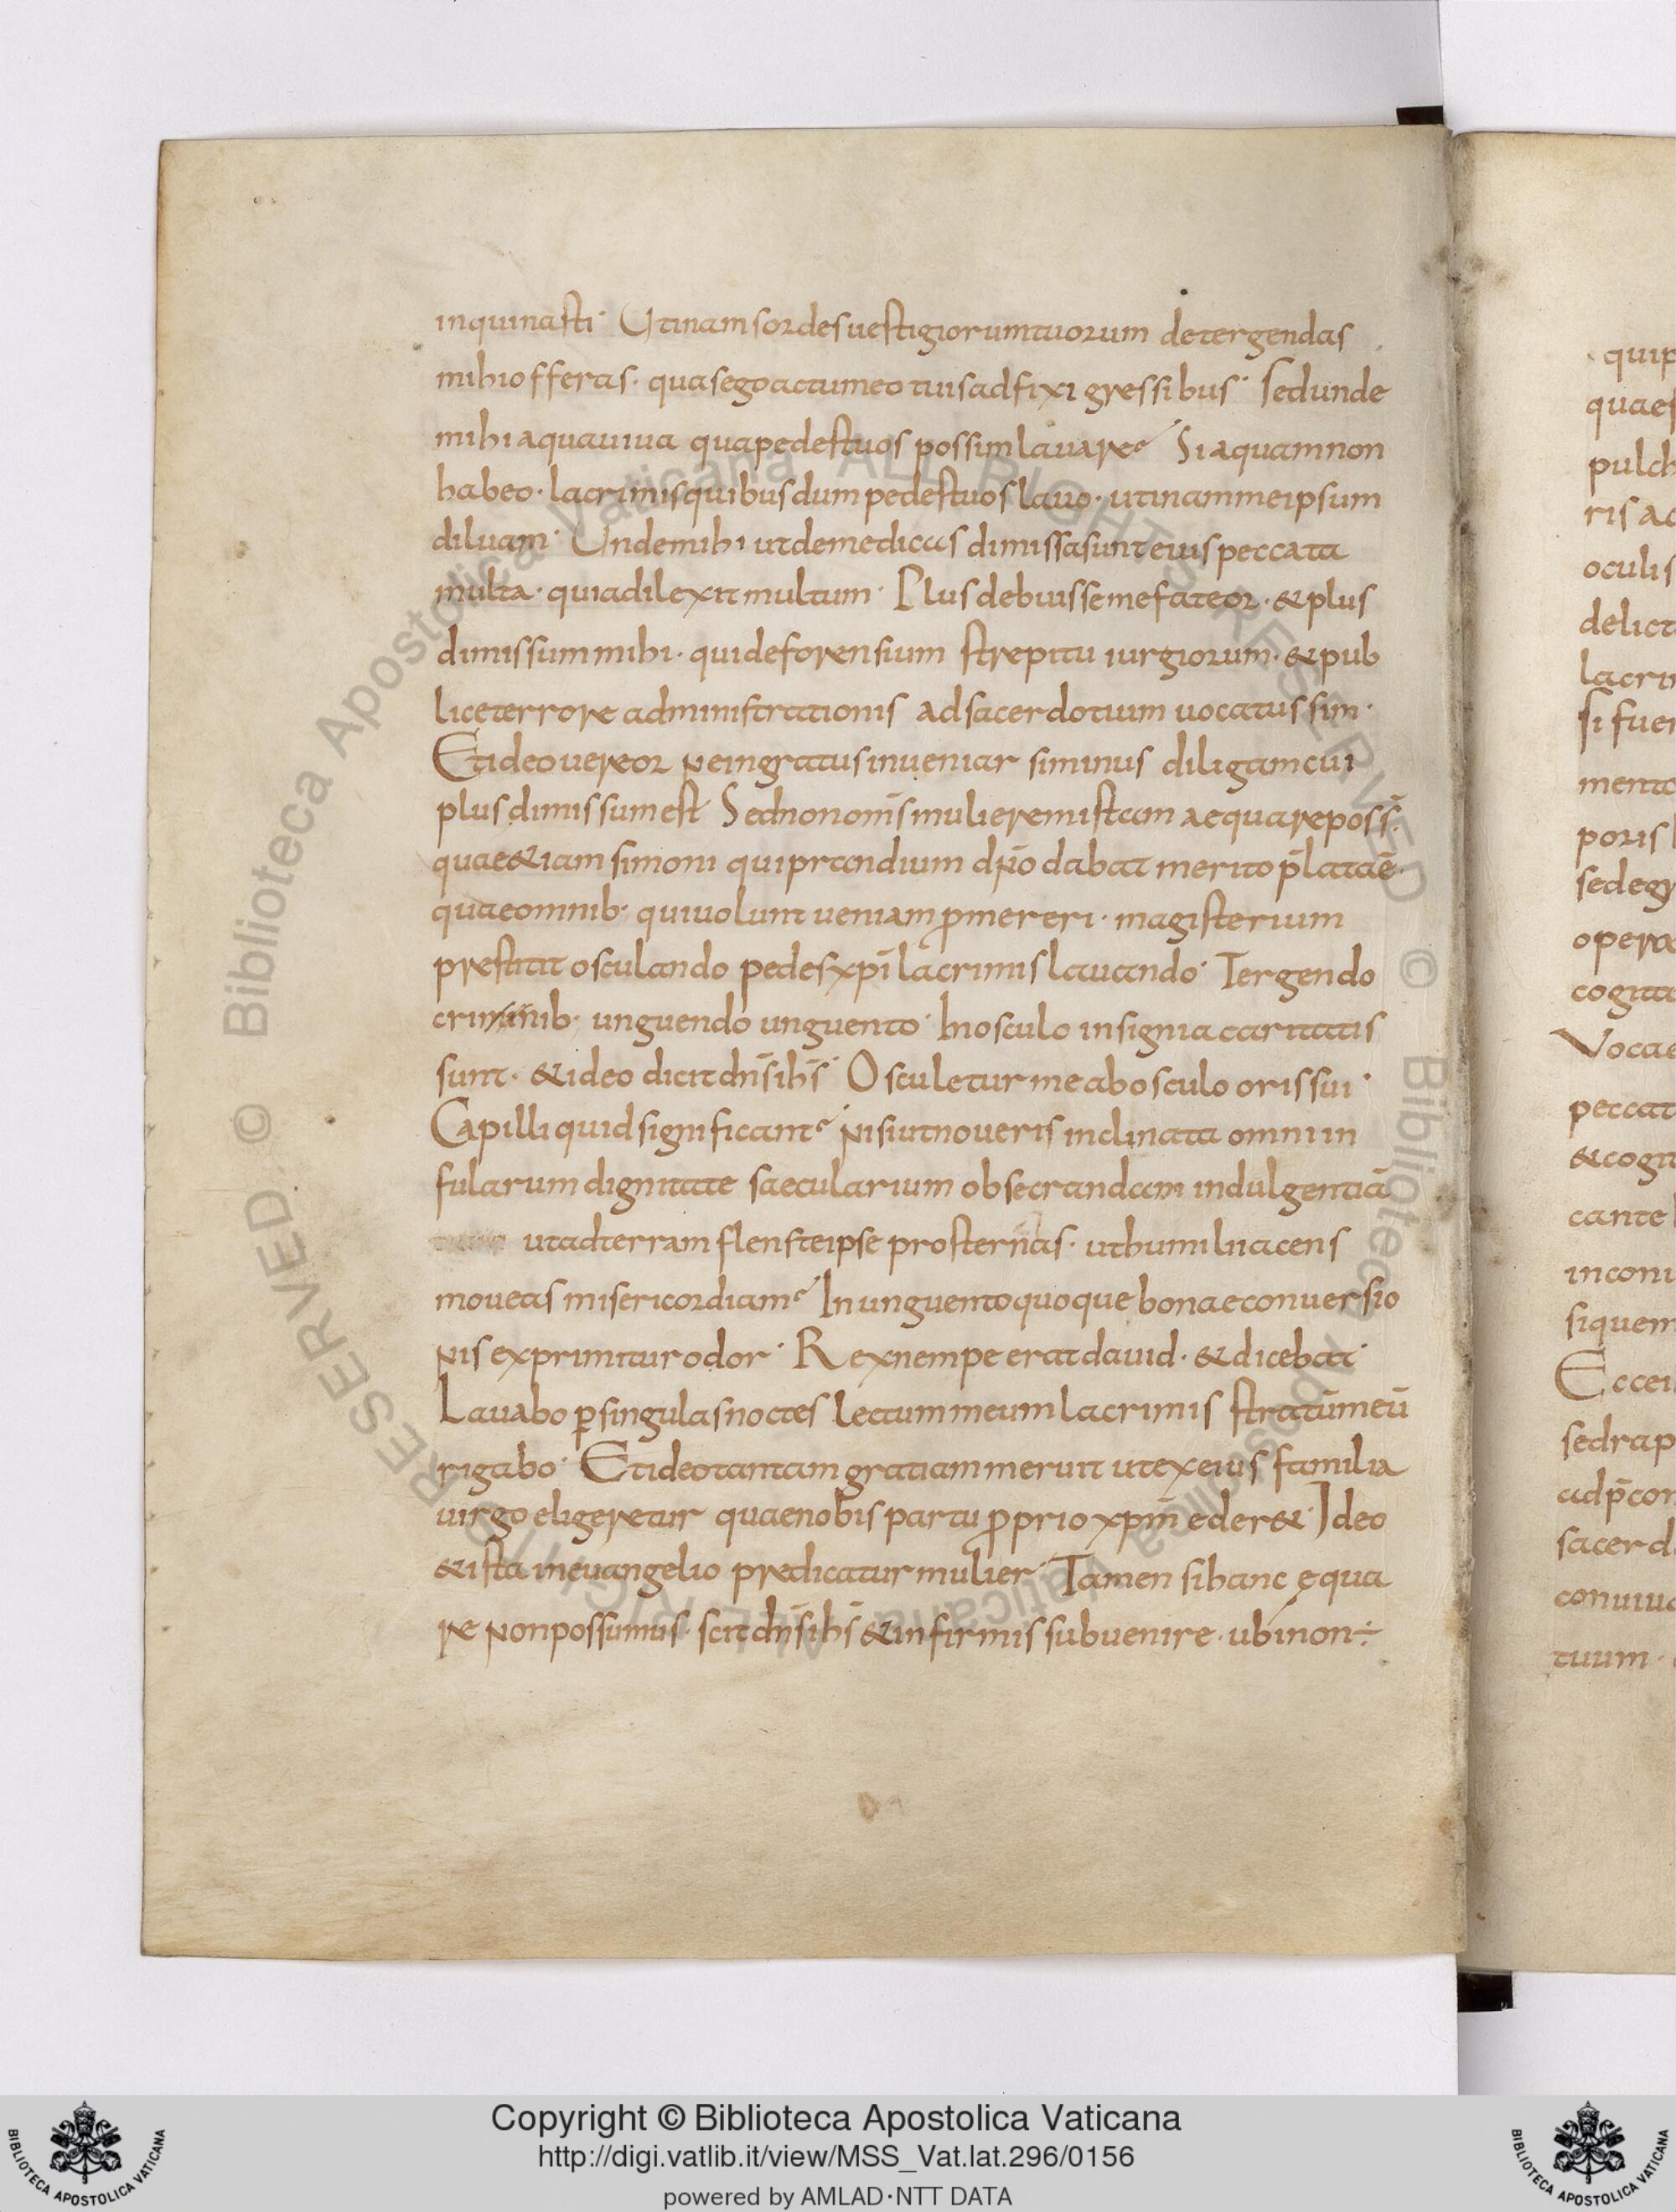 inquinasti· Utinam sordes uestigiorum tuorum detergendas
mihi offeras· quas ego actu meo tuis adfixi gressibus· Sed unde
mihi aqua uiua qua pedes tuos possim lauare? Si aquam non
habeo· lacrimis quibus dum pedes tuos lauo· utinam me ipsum
diluam· Unde mihi ut de me dicas dimissa sunt eius peccata
multa· quia dilexit multum· Plus debuisse me fateor· & plus
dimissum mihi· qui de forensium strepitu iurgiorum· & pub
lice terrore administrationis ad sacerdotium uocatus sim·
Et ideo uereor ne ingratus inueniar si minus diligam cui
plus dimissum est Sed non om̄s mulierem istam aequare poss̄·
quae &iam simoni qui prandium dn̄o dabat merito p̄lata ē·
quae omnib· qui uolunt ueniam ꝓmereri· magisterium
prestitit osculando pedes xp̄i lacrimis lauando· Tergendo
crinib· unguendo unguento· In osculo insignia caritatis
sunt· & ideo dicit dn̄s ih̄s· Osculetur me ab osculo oris sui·
Capilli quid significant? nisi ut noueris inclinata omni in
fularum dignitate saecularium obsecrandam indulgentiā
ut ad terram flens te ipse prosternas· ut humi li iacens
moueas misericordiam? In unguento quoque bonae conuersio
nis exprimitur odor· Rex nempe erat dauid· & dicebat·
Lauabo ꝑ singulas noctes lectum meum lacrimis stratū meū
rigabo· Et ideo tantam gratiam meruit ut ex eius familia
uirgo eligeretur quae nobis partu ꝓprio xpm̄ eder&· Ideo
& ista in euangelio predicatur mulier· Tamen si hanc ęqua
re non possumus· scit dn̄s ih̄s & infirmis subuenire· ubi non ÷
· quip
quaes
pulch
ris ac
oculis
delict
lacri
si fuer
mento
poris
sed eg
opera
cogita
Vocae
peccat
& cogit
cante
si quem
Ecce
sed rap
ad p̄cor
sacerd
conuiu
tuum ·
© Biblioteca Apostolica Vaticana ALL RIGHTS RESERVED © Biblioteca Apostolica Vaticana ALL RIGHTS RESERVED
Copyright © Biblioteca Apostolica Vaticana
http://digi.vatlib.it/view/MSS_Vat.lat.296/0156
powered by AMLAD·NTT DATA
BIBLIOTECA APOSTOLICA VATICANA
BIBLIOTECA APOSTOLICA VATICANA